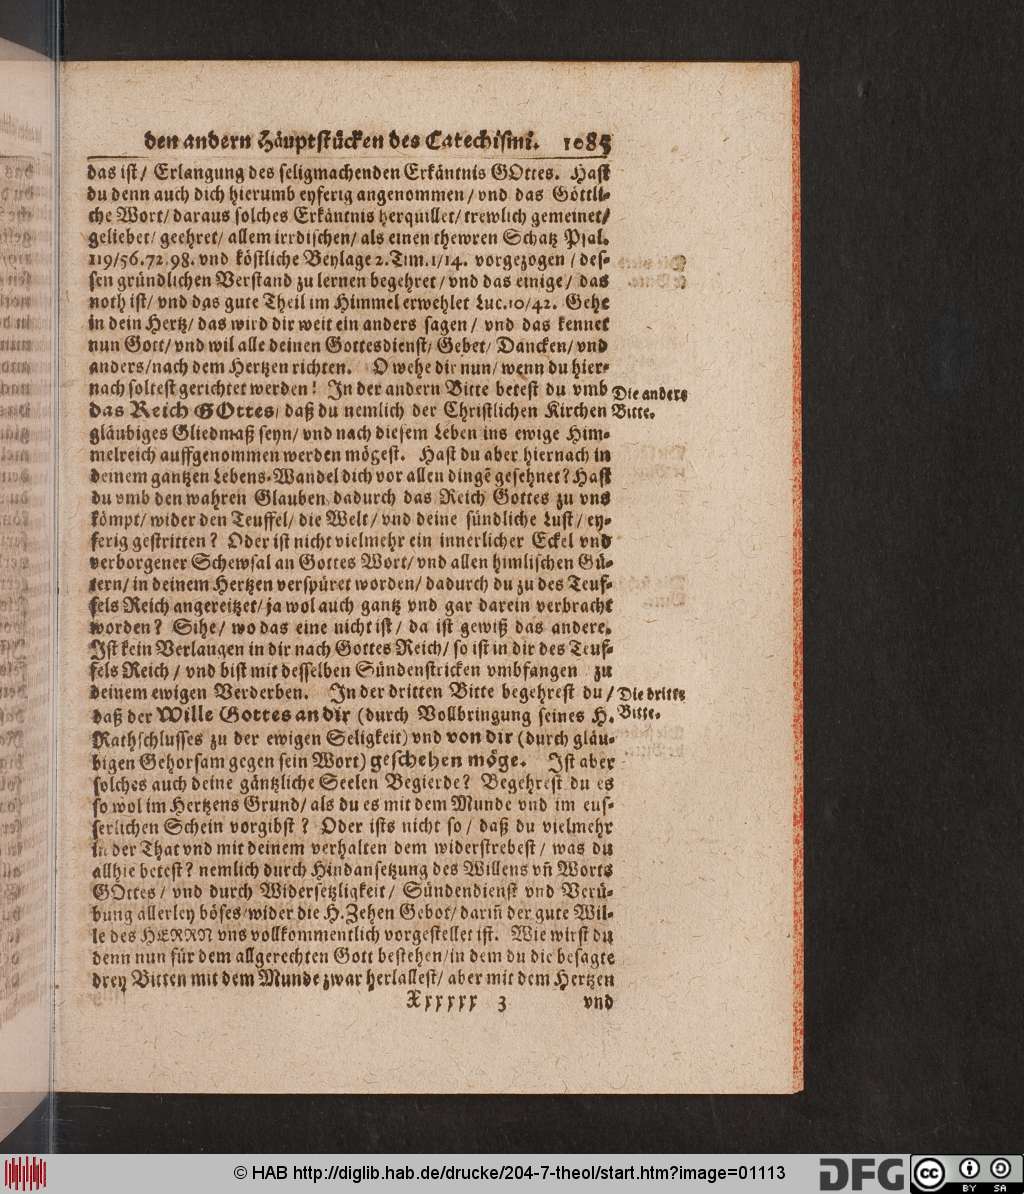 den andern Häuptstücken des Catechismi. 1085
das ist/ Erlangung des seligmachenden Erkäntnis GOttes. Hast
du denn auch dich hierumb eyferig angenommen/ vnd das Göttli-
che Wort/ daraus solches Erkäntnis herquillet/ trewlich gemeinet/
geliebet/ geehret/ allem irrdischen/ als einen thewren Schatz Psal.
119/56.72.98. vnd köstliche Beylage 2.Tim.1/14. vorgezogen/ des-
sen gründlichen Verstand zu lernen begehret/ vnd das einige/ das
noth ist/ vnd das gute Theil im Himmel erwehlet Luc.10/42. Gehe
in dein Hertz/ das wird dir weit ein anders sagen/ vnd das kennet
nun Gott/ vnd wil alle deinen Gottesdienst/ Gebet/ Dancken/ vnd
anders/nach dem Hertzen richten. O wehe dir nun/ wenn du hier-
nach soltest gerichtet werden! In der andern Bitte betest du vmb
Die andere
das Reich GOttes/ daß du nemlich der Christlichen Kirchen
Bitte.
gläubiges Gliedmaß seyn/ vnd nach diesem Leben ins ewige Him-
melreich auffgenommen werden mögest. Hast du aber hiernach in
deinem gantzen Lebens-Wandel dich vor allen dingē gesehnet? Hast
du vmb den wahren Glauben dadurch das Reich Gottes zu vns
kömpt/ wider den Teuffel/ die Welt/ vnd deine sündliche Lust/ ey-
ferig gestritten? Oder ist nicht vielmehr ein innerlicher Eckel vnd
verborgener Schewsal an Gottes Wort/ vnd allen himlischen Gü-
tern/ in deinem Hertzen verspüret worden/ dadurch du zu des Teuf-
fels Reich angereitzet/ ja wol auch gantz vnd gar darein verbracht
worden? Sihe/ wo das eine nicht ist/ da ist gewiß das andere.
Ist kein Verlangen in dir nach Gottes Reich/ so ist in dir des Teuf-
fels Reich/ vnd bist mit desselben Sündenstricken vmbfangen zu
deinem ewigen Verderben. In der dritten Bitte begehrest du/
Die dritte
daß der Wille Gottes an dir (durch Vollbringung seines H.
Bitte.
Rathschlusses zu der ewigen Seligkeit) vnd von dir (durch gläu-
bigen Gehorsam gegen sein Wort) geschehen möge. Ist aber
solches auch deine gäntzliche Seelen Begierde? Begehrest du es
so wol im Hertzens Grund/ als du es mit dem Munde vnd im eus-
serlichen Schein vorgibst? Oder ists nicht so/ daß du vielmehr
in der That vnd mit deinem verhalten dem widerstrebest/ was du
allhie betest? nemlich durch Hindansetzung des Willens vn̄ Worts
GOttes/ vnd durch Widersetzligkeit/ Sündendienst vnd Verü-
bung allerley böses/wider die H.Zehen Gebot/ darin̄ der gute Wil-
le des HERRN vns vollkommentlich vorgestellet ist. Wie wirst du
denn nun für dem allgerechten Gott bestehen/in dem du die besagte
drey Bitten mit dem Munde zwar herlallest/ aber mit dem Hertzen
Xxxxxx 3 vnd
© HAB http://diglib.hab.de/drucke/204-7-theol/start.htm?image=01113
DFG
cc BY SA